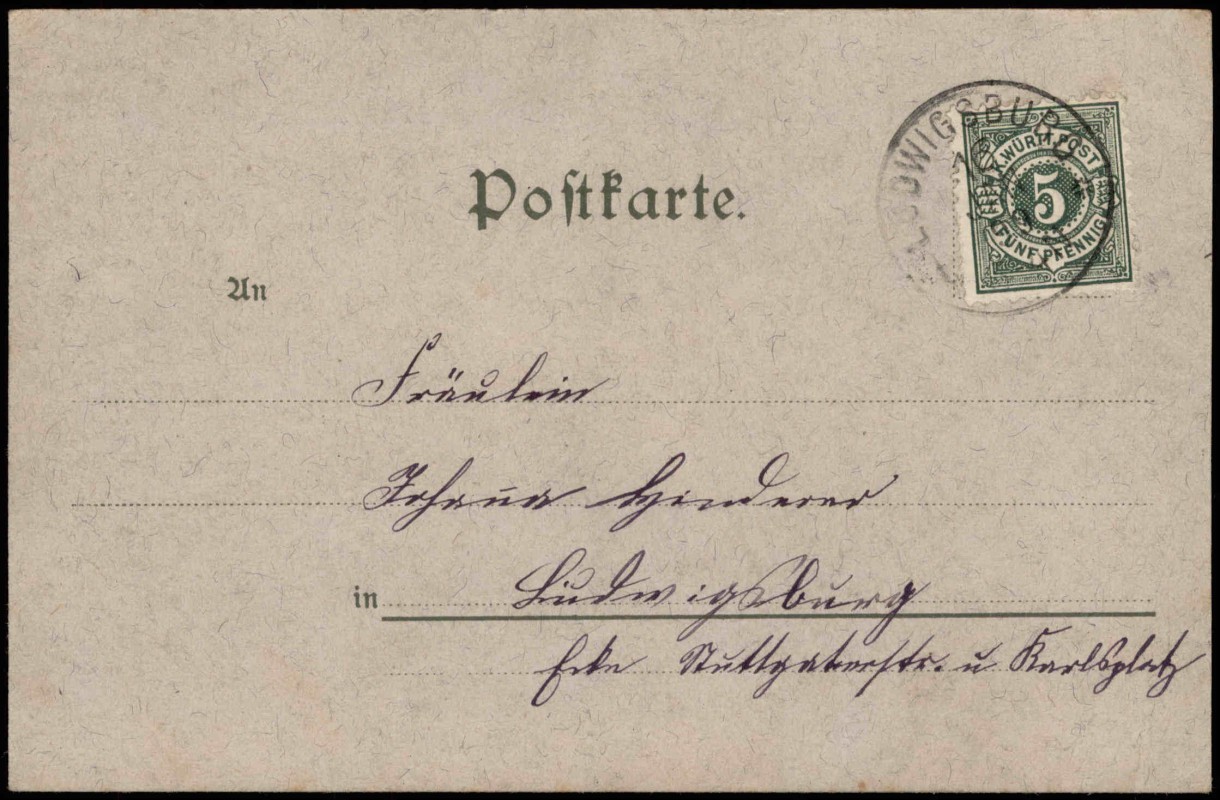 Postkarte.
LUDWIGSBURG
K. WÜRTT. POST
5
FÜNF PFENNIG
An
Fräulein
Johana Hinderer
in Ludwigsburg
Ecke Stuttgaterstr. u Karlsplatz